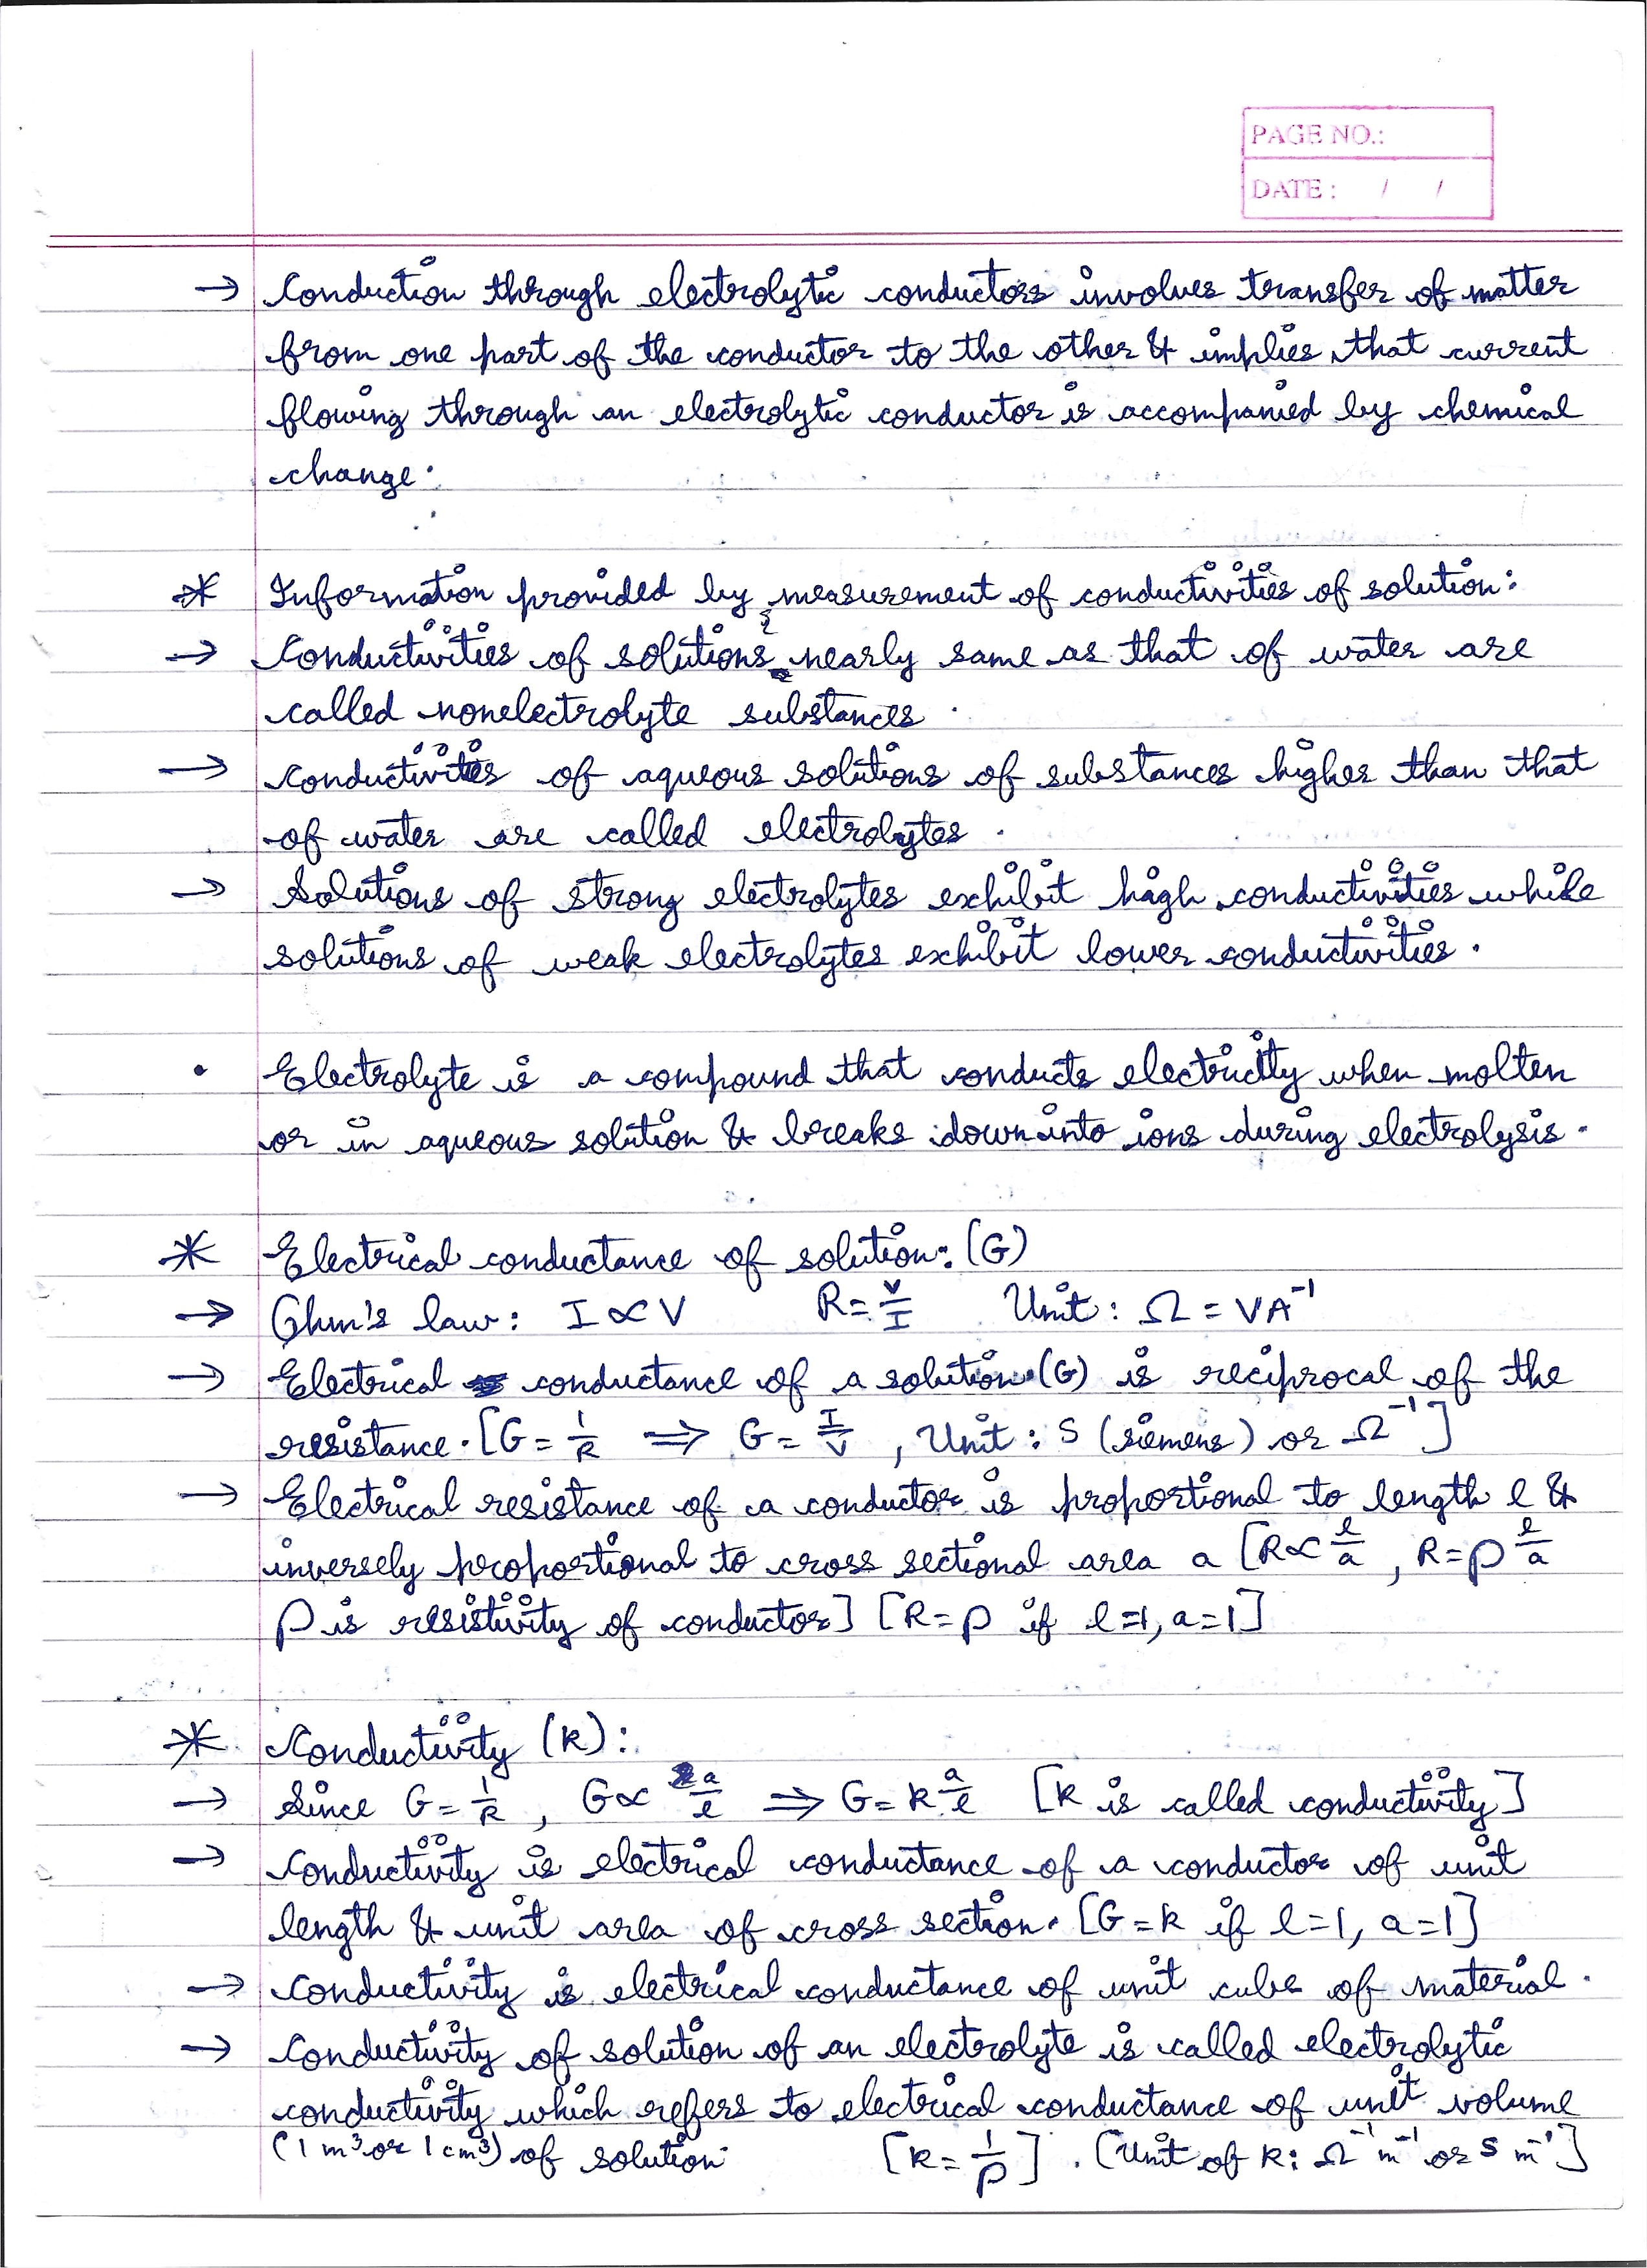 PAGE NO.:
DATE : / /
→ Conduction through electrolytic conductors involves transfer of matter
from one part of the conductor to the other & implies that current
flowing through an electrolytic conductor is accompanied by chemical
change.
* Information provided by measurement of conductivities of solution:
→ Conductivities of solutions nearly same as that of water are
called nonelectrolyte substances.
→ Conductivites of aqueous solutions of substances higher than that
of water are called electrolytes.
→ Solutions of strong electrolytes exhibit high conductivities while
solutions of weak electrolytes exhibit lower conductivities.
• Electrolyte is a compound that conducts electricity when molten
or in aqueous solution & breaks down into ions during electrolysis.
* Electrical conductance of solution: (G)
→ Ohm's law: I ∝ V R = V/I Unit : Ω = VA⁻¹
→ Electrical conductance of a solution (G) is reciprocal of the
resistance. [G = 1/R ⟹ G = I/V , Unit : S (siemens) or Ω⁻¹]
→ Electrical resistance of a conductor is proportional to length l &
inversely proportional to cross sectional area a [R ∝ l/a , R = ρ l/a
ρ is resistivity of conductor] [R = ρ if l = 1, a = 1]
* Conductivity (k):
→ Since G = 1/R , G ∝ a/l ⟹ G = k a/l [k is called conductivity]
→ Conductivity is electrical conductance of a conductor of unit
length & unit area of cross section. [G = k if l = 1, a = 1]
→ Conductivity is electrical conductance of unit cube of material.
→ Conductivity of solution of an electrolyte is called electrolytic
conductivity which refers to electrical conductance of unit volume
(1 m³ or 1 cm³) of solution. [k = 1/ρ] . [Unit of k: Ω⁻¹ m⁻¹ or S m⁻¹]